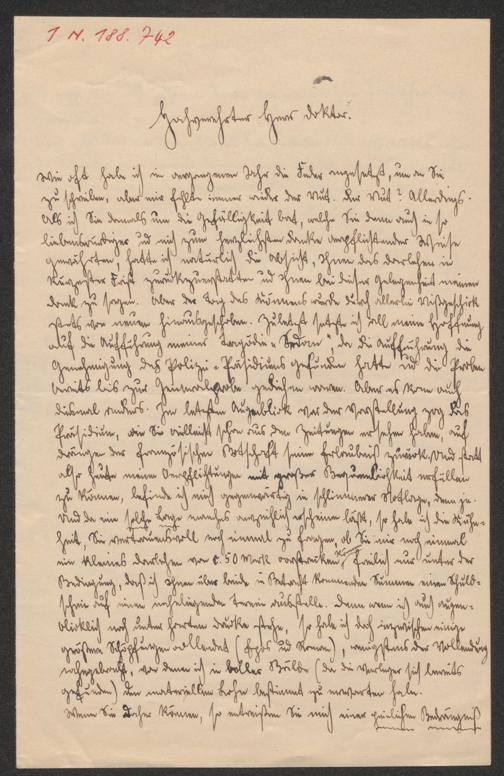 I N. 188.742
Hochverehrter Herr Doktor.
Wie oft habe ich im vergangenen Jahr die Feder angesetzt, um an Sie
zu schreiben, aber mir fehlte immer wieder der Mut. Der Mut? Allerdings.
Als ich Sie damals um die Gefälligkeit bat, welche Sie denn auch in so
liebenswürdiger und mich zum herzlichsten Danke verpflichtender Weise
gewährten, hatte ich natürlich die Absicht, Ihnen das Darlehen in
kürzester Frist zurückzuerstatten und Ihnen bei dieser Gelegenheit meinen
Dank zu sagen. Aber der Tag des Könnens wurde durch allerlei Mißgeschick
stets von neuem hinausgeschoben. Zuletzt setzte ich all meine Hoffnung
auf die Aufführung meiner Tragödie „Sedan“, da die Aufführung die
Genehmigung des Polizei-Präsidiums gefunden hatte und die Proben
bereits bis zur Generalprobe gediehen waren. Aber es kam auch
diesmal anders. Im letzten Augenblick vor der Vorstellung zog das
Präsidium, wie Sie vielleicht schon aus den Zeitungen ersehen haben, auf
Drängen der französischen Botschaft seine Erlaubniß zurück. Und statt
also heute meine Verpflichtungen mit großer Bequemlichkeit erfüllen
zu können, befinde ich mich gegenwärtig in schlimmerer Notlage, denn je.
Und da eine solche Lage manches verzeihlich erscheinen läßt, so habe ich die Kühn-
heit, Sie vertrauensvoll noch einmal zu fragen, ob Sie mir noch einmal
ein kleines Darlehen von c. 50 Mark vorstrecken freilich nur unter der
Bedingung, daß ich Ihnen über beide in Betracht kommenden Summen einen Schuld-
schein auf einen naheliegenden Termin ausstelle. Denn wenn ich auch augen-
blicklich noch unter hartem Drucke stehe, so habe ich doch inzwischen einige
größere Schöpfungen vollendet wenigstens der Vollendung
nahegebracht, von denen ich in voller Bälde (da die Verleger sich bereits
gefunden) den materiellen Lohn bestimmt zu erwarten habe.
Wenn Sie daher können, so entreißen Sie mich einer peinlichen Bedrängniß